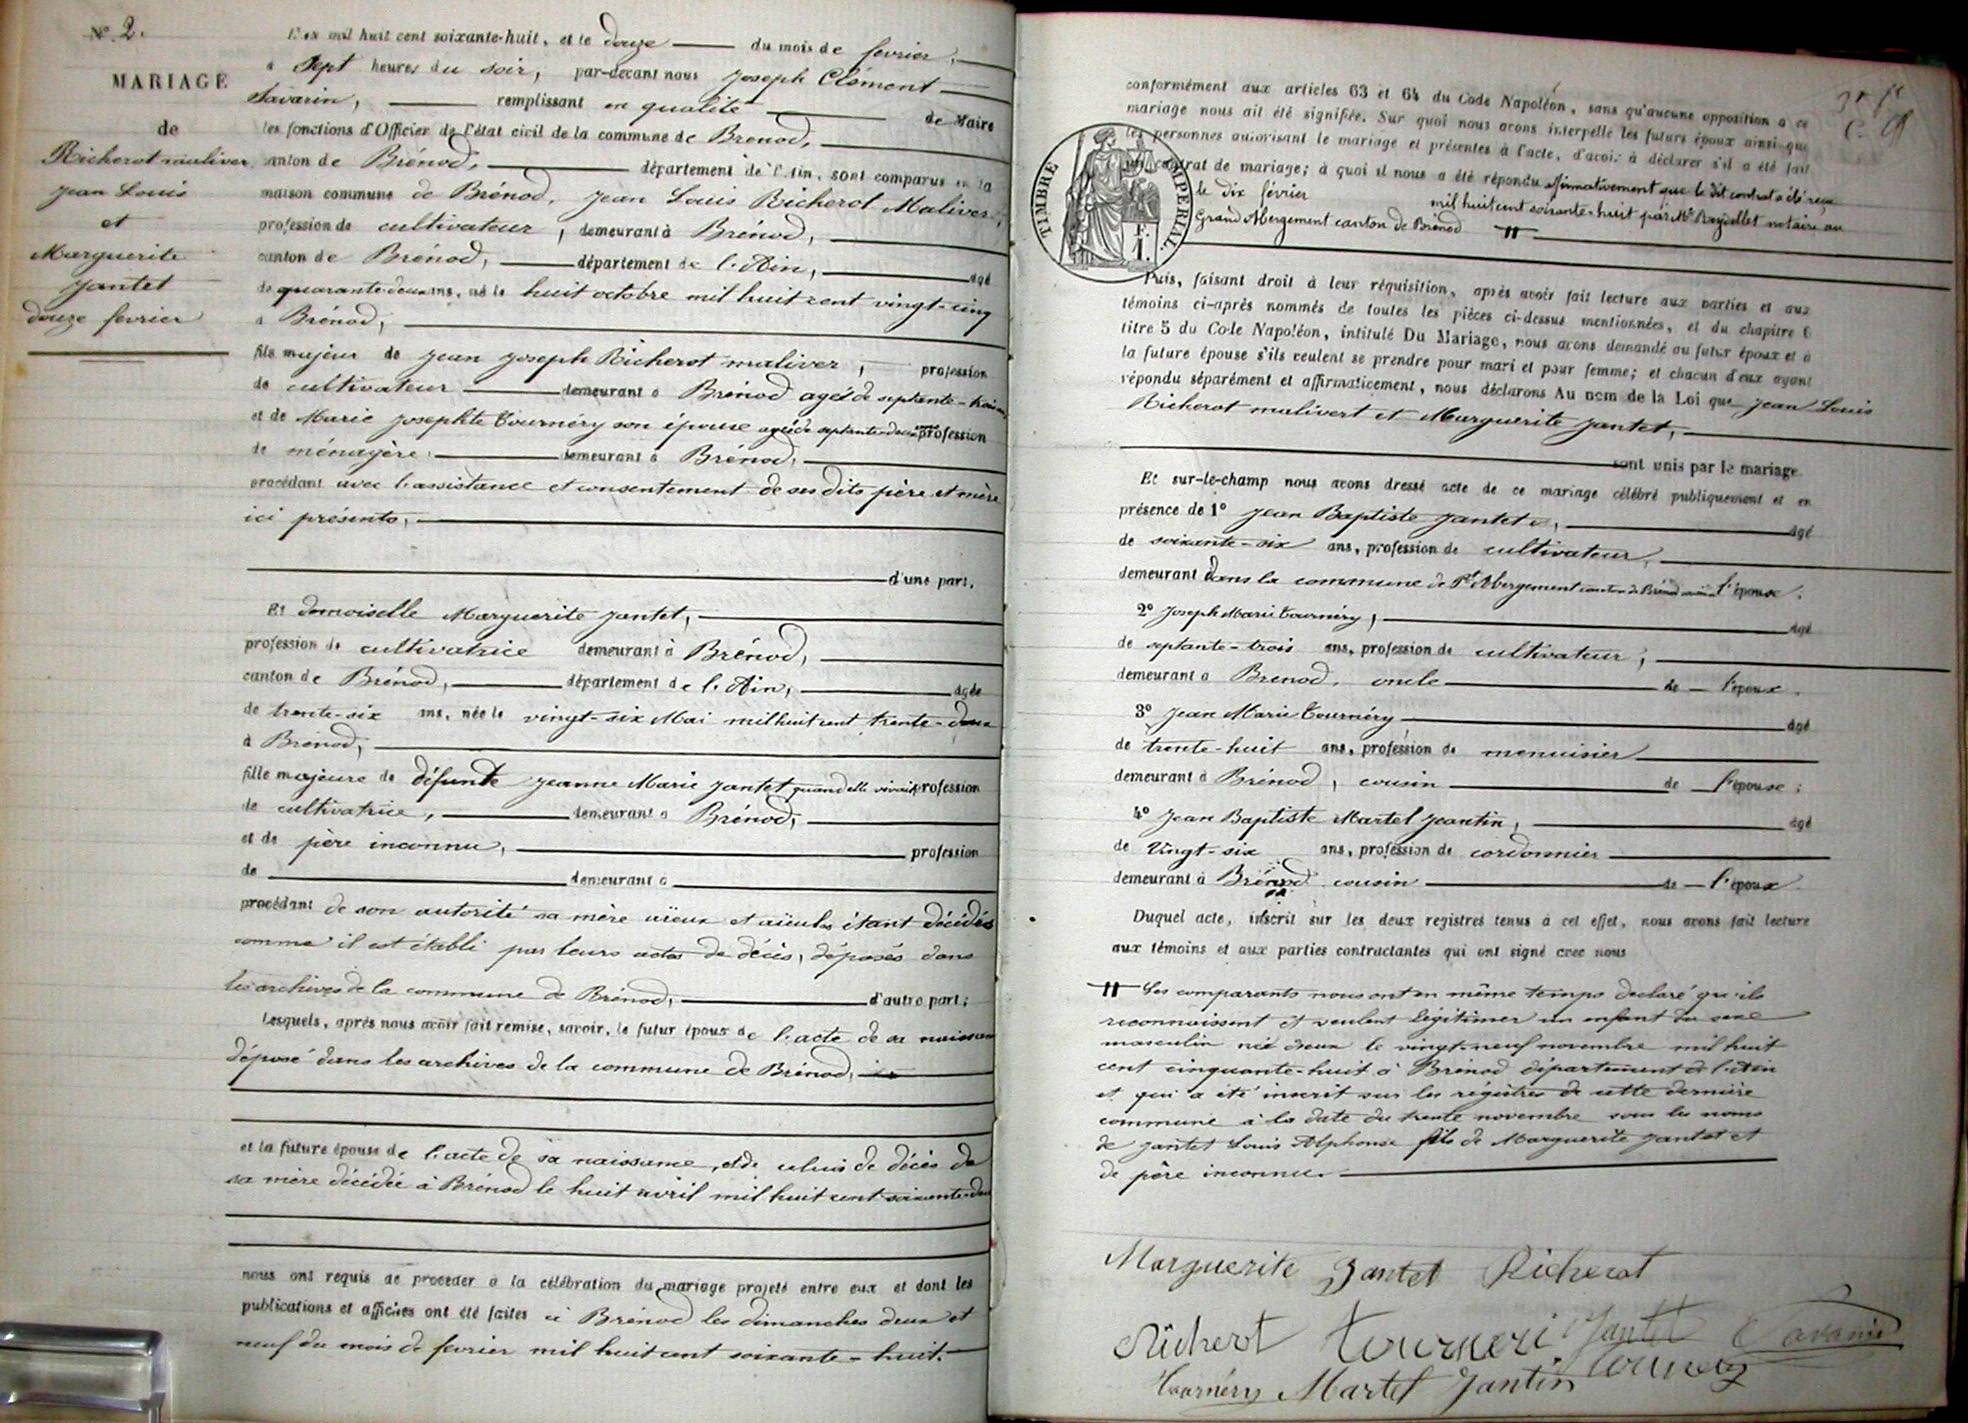 N° 2.
MARIAGE
de
Richerot maliver
Jean Louis
et
Marguerite
Jantet
douze fevrier
L'an mil huit cent soixante-huit, et le douze du mois de fevrier,
à sept heures du soir, par-devant nous Joseph Clément
Savarin, remplissant en qualité de Maire
les fonctions d'Officier de l'état civil de la commune de Brenod,
canton de Brénod, département de l'Ain, sont comparus en la
maison commune de Brénod, Jean Louis Richerot Maliver,
profession de cultivateur, demeurant à Brénod,
canton de Brénod, département de l'Ain, âgé
de quarante-deux ans, né le huit octobre mil huit cent vingt-cinq
à Brénod,
fils majeur de Jean Joseph Richerot maliver, profession
de cultivateur demeurant à Brénod agé de septante-trois ans
et de Marie Josephte Tournéry son épouse agée de septante-deux ans profession
de ménagère demeurant à Brénod,
procédant avec l'assistance et consentement de ses dits père et mère
ici présents,
d'une part.
Et demoiselle Marguerite Jantet,
profession de cultivatrice demeurant à Brénod,
canton de Brénod, département de l'Ain, âgée
de trente-six ans, née le vingt-six Mai mil huit cent trente-deux
à Brénod,
fille majeure de défunte Jeanne Marie Jantet quand elle vivait profession
de cultivatrice, demeurant à Brénod,
et de père inconnu, profession
de demeurant à
procédant de son autorité sa mère aïeux et aïeules étant décédés
comme il est établi par leurs actes de décès, déposés dans
les archives de la commune de Brénod, d'autre part;
Lesquels, après nous avoir fait remise, savoir, le futur époux de l'acte de sa naissance
déposé dans les archives de la commune de Brénod,
et la future épouse de l'acte de sa naissance, et de celui de décès de
sa mère décédée à Brénod le huit avril mil huit cent soixante-deux
nous ont requis de procéder à la célébration du mariage projeté entre eux et dont les
publications et affiches ont été faites à Brénod les dimanches deux et
neuf du mois de fevrier mil huit cent soixante-huit.
conformément aux articles 63 et 64 du Code Napoléon, sans qu'aucune opposition à ce
mariage nous ait été signifiée. Sur quoi nous avons interpellé les futurs époux ainsi que
les personnes autorisant le mariage et présentes à l'acte, d'avoir à déclarer s'il a été fait
un contrat de mariage; à quoi il nous a été répondu affirmativement que le dit contrat a été reçu
le dix février mil huit cent soixante-huit par Me notaire au
Grand Abergement canton de Brénod
TIMBRE IMPERIAL.
Puis, faisant droit à leur réquisition, après avoir fait lecture aux parties et aux
témoins ci-après nommés de toutes les pièces ci-dessus mentionnées, et du chapitre 6
titre 5 du Code Napoléon, intitulé Du Mariage, nous avons demandé au futur époux et à
la future épouse s'ils veulent se prendre pour mari et pour femme; et chacun d'eux ayant
répondu séparément et affirmativement, nous déclarons Au nom de la Loi que Jean Louis
Richerot malivert et Marguerite Jantet,
sont unis par le mariage.
Et sur-le-champ nous avons dressé acte de ce mariage célébré publiquement et en
présence de 1° Jean Baptiste Jantet, âgé
de soixante-six ans, profession de cultivateur,
demeurant dans la commune de Pt Abergement canton de Brénod l'épouse;
2° Joseph Marie Tournéry, âgé
de septante-trois ans, profession de cultivateur,
demeurant à Brenod, oncle de l'époux.
3° Jean Marie Tournéry âgé
de trente-huit ans, profession de menuisier
demeurant à Brénod, cousin de l'épouse;
4° Jean Baptiste Martel Jeantin, âgé
de vingt-six ans, profession de cordonnier
demeurant à Brénod cousin de l'époux.
Duquel acte, inscrit sur les deux registres tenus à cet effet, nous avons fait lecture
aux témoins et aux parties contractantes qui ont signé avec nous
Les comparants nous ont en même temps declaré qu'ils
reconnaissent et veulent légitimer un enfant du sexe
masculin né d'eux le vingt-neuf novembre mil huit
cent cinquante-huit à Brénod département de l'Ain
et qui a été inscrit sur les régistres de cette dernière
commune à la date du trente novembre sous les noms
de Jantet Louis Alphonse fils de Marguerite Jantet et
de père inconnu.
Marguerite Jantet Richerot
Richerot Tourneri Jantet Savarin
Tournéry Martel Jantin